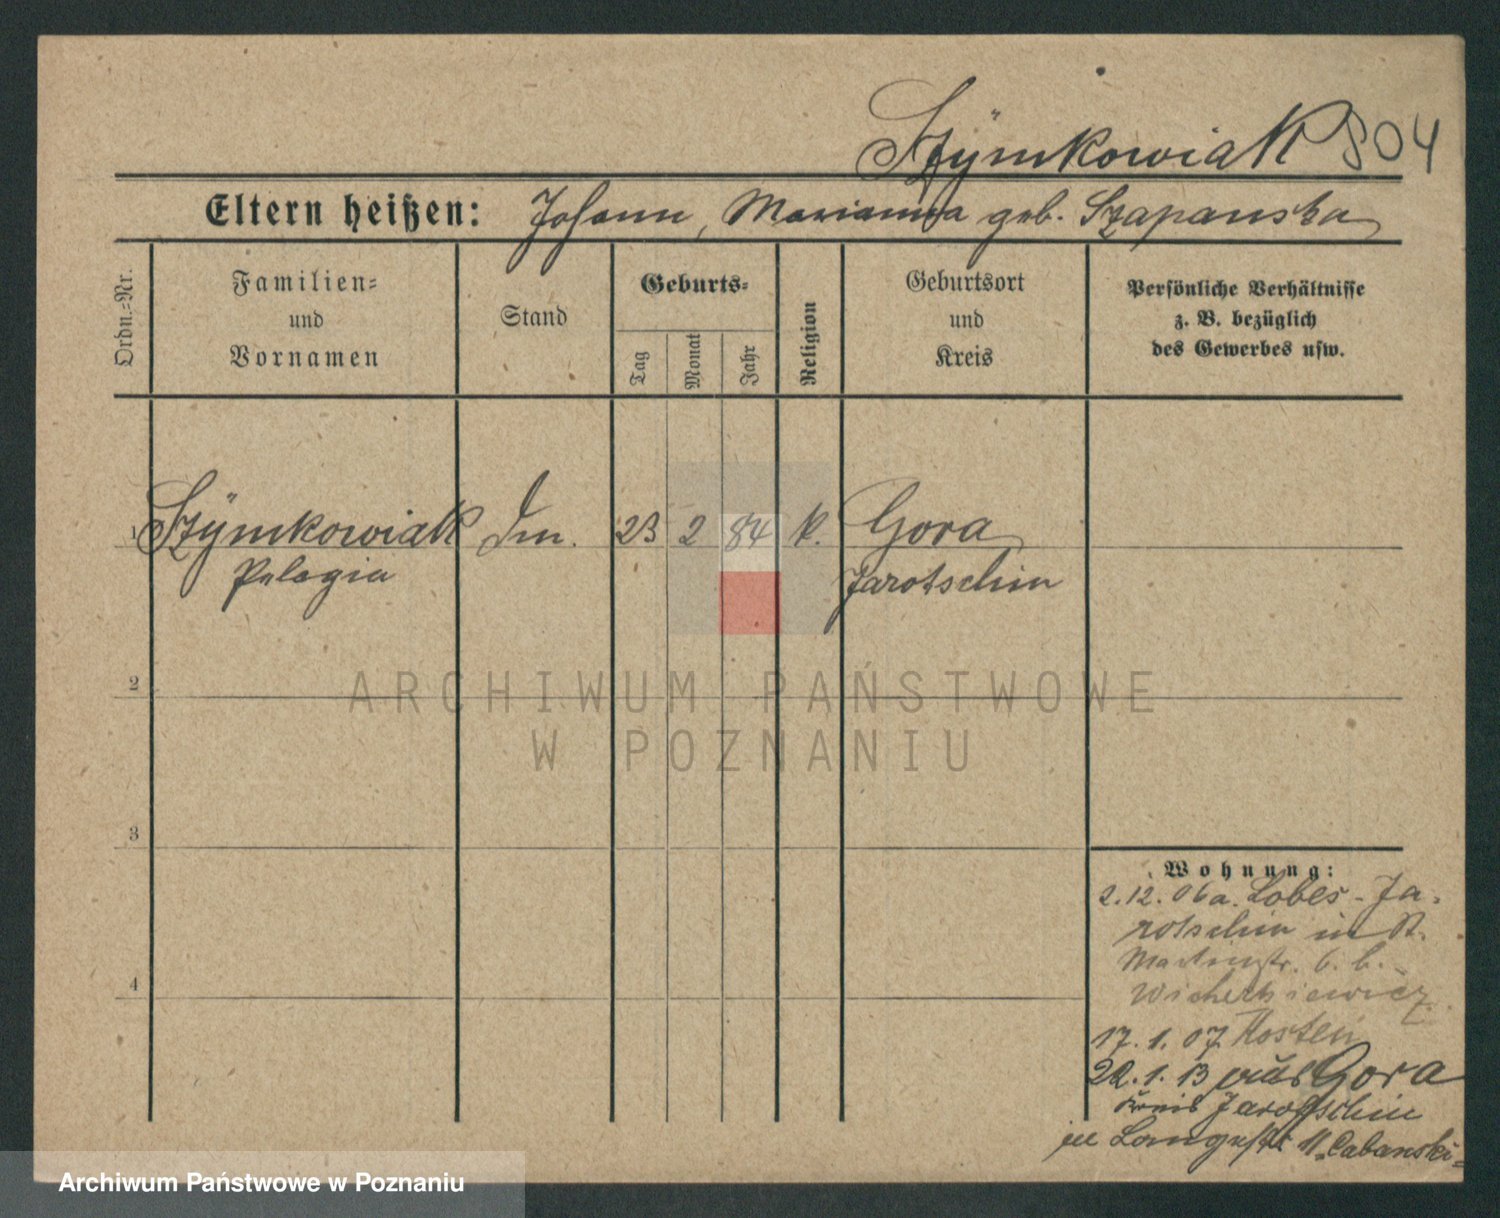 Szÿmkowiak 804
Eltern heißen: Johann, Marianna geb. Szapanska
Ordn.-Nr.
Familien-
und
Vornamen
Stand
Geburts-
Tag
Monat
Jahr
Religion
Geburtsort
und
Kreis
Persönliche Verhältnisse
z. B. bezüglich
des Gewerbes usw.
1 Szÿmkowiak 23 2 84 k. Gora
Pelagia Jarotschin
2
ARCHIWUM PAŃSTWOWE
W POZNANIU
3
4
Wohnung:
2.12.06 a. Lobes-Ja-
rotschin in St.
Martinstr. 6. b.
17.1.07 Kosten
22.1.13 aus Gora
Kreis Jarotschin
in Langestr 11
Archiwum Państwowe w Poznaniu